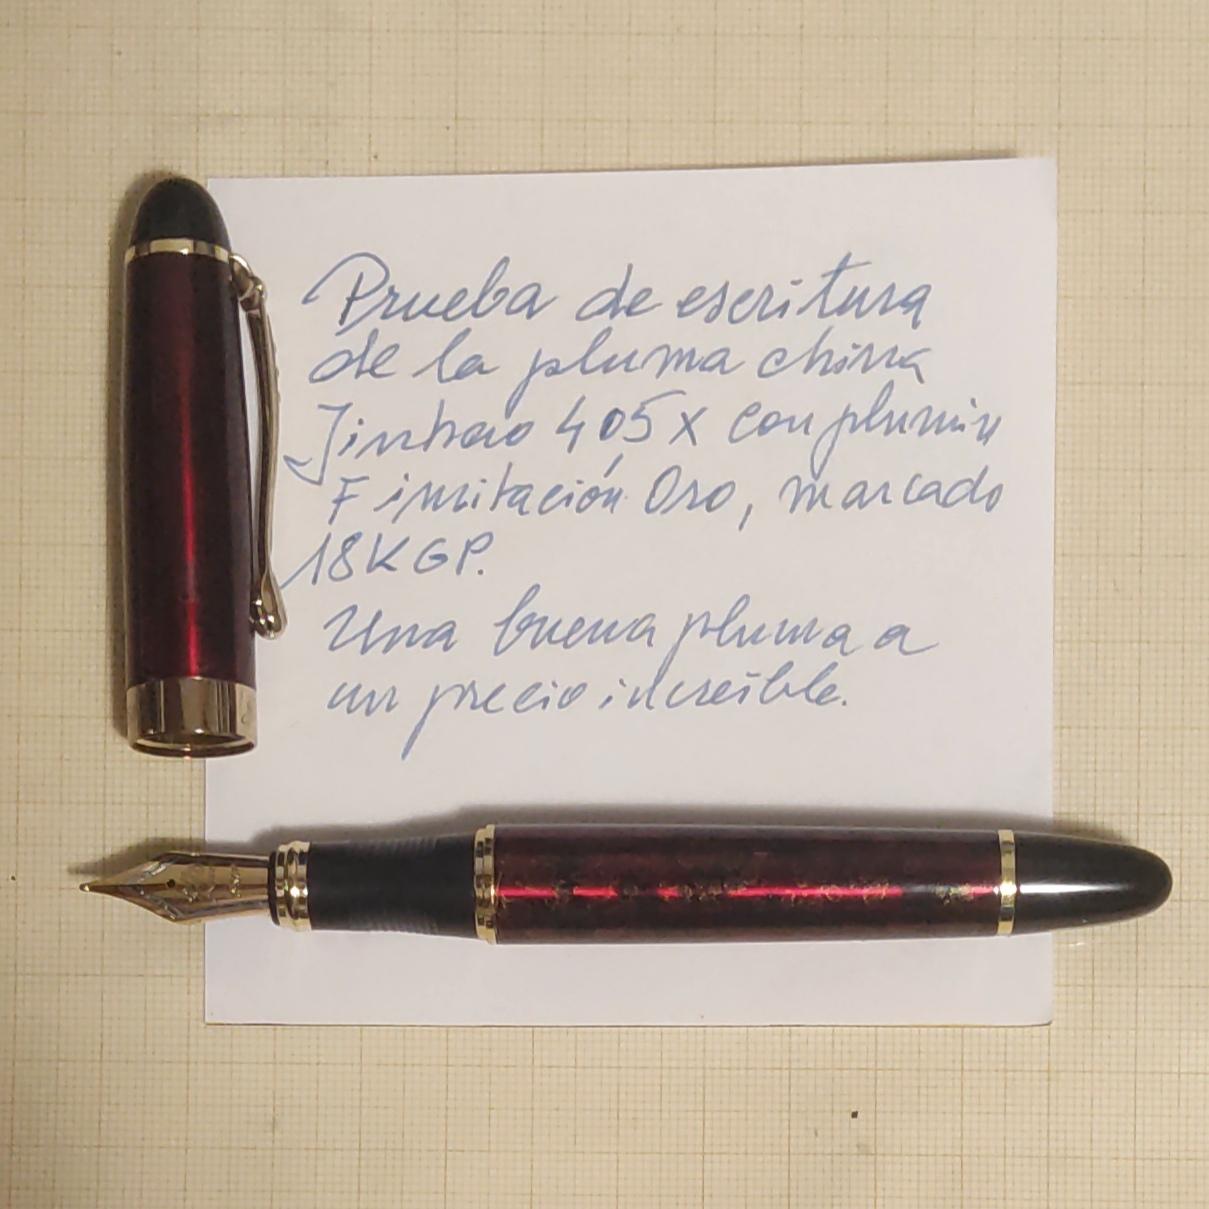 Prueba de escritura
de la pluma china
Jinhao 405 x con plumín
F imitación Oro, marcado
18K GP.
Una buena pluma a
un precio increíble.